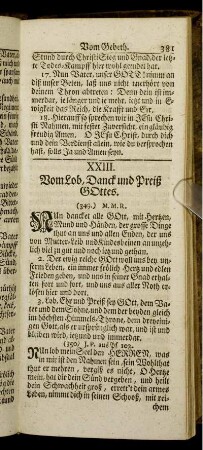 Vom Gebeth. 381
Stund durch Christi Sieg und Gnad, der letz-
te Todes-Kampff hier wohl gerad hat.
17. Nun Vater, unser GOTT nimm an
diß unser Beten, laß uns nicht unerhört von
deinem Thron abtreten: Denn dein ist im-
merdar, je länger und je mehr, letzt und in E-
wigkeit das Reich, die Krafft und Ehr.
18. Hierauff so sprechen wir in JEsu Chri-
sti Nahmen, mit fester Zuversicht, ein gläubig
freudig Amen. O JEsu Christ, durch dich
und dein Verdienst allein, wie du versprochen
hast, solls Ja und Amen seyn.
XXIII.
Vom Lob, Danck und Preiß
GOttes.
(349.) M. M. R.
NUn dancket alle GOtt, mit Hertzen,
Mund und Händen, der grosse Dinge
thut an uns und allen Enden, der uns
von Mutter-Leib und Kindesbeinen an unzeh-
lich viel zu gut und noch jetzund gethan.
2. Der ewig reiche GOtt woll uns bey un-
serm Leben, ein immer frölich Hertz und edlen
Frieden geben, und uns in seiner Gnad erhal-
ten fort und fort, und uns aus aller Noth er-
lösen hier und dort.
3. Lob, Ehr und Preiß sey GOtt, dem Va-
ter und dem Sohne, und dem der beyden gleich
im höchsten Himmels-Throne, dem dreyeini-
gen GOtt, als er ursprünglich war, und ist und
bleiben wird, jetzund und immerdar.
(350.) J. P. aus Ps. 103.
NUn lob mein Seel den HERREN, was
in mir ist den Nahmen sein, sein Wohlthat
that er mehren, vergiß es nicht, O Hertze
mein, hat dir dein Sünd vergeben, und heilt
dein Schwachheit groß, errett't dein armes
Leben, nimmt dich in seinen Schooß, mit rei-
chem